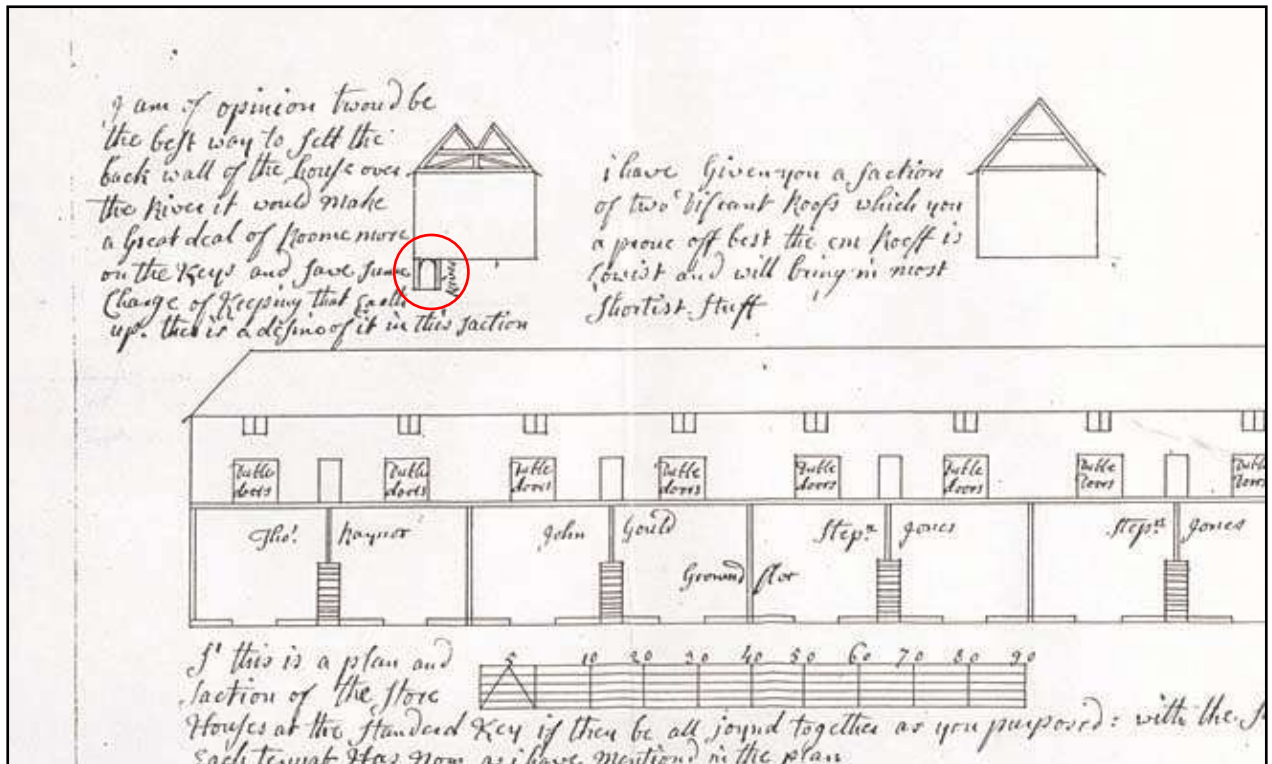 I am of opinion twould be
the best way to sett the
back wall of the house over
the River it would make
a Great deal of Roome more
on the Keys and save sume
Charge of Keeping that Earth
up. ther is a desine of it in this saction
River
i have Given you a saction
of two difrant Roofs which you
a prove off best the em Rooff is
lowist and will bring in most
Shortist stuff
Duble doors
Duble doors
Duble doors
Duble doors
Duble doors
Duble doors
Duble doors
Duble doors
Tho.s Raynor
John Gould
Step.n Jones
Step.n Jones
Ground flor
5 10 20 30 40 50 60 70 80 90
Sr this is a plan and
saction of the store
Houses at the Standerd Key if they be all joynd together as you purposed: with the
Each tenant Has Now as i have Mentiond in the plan